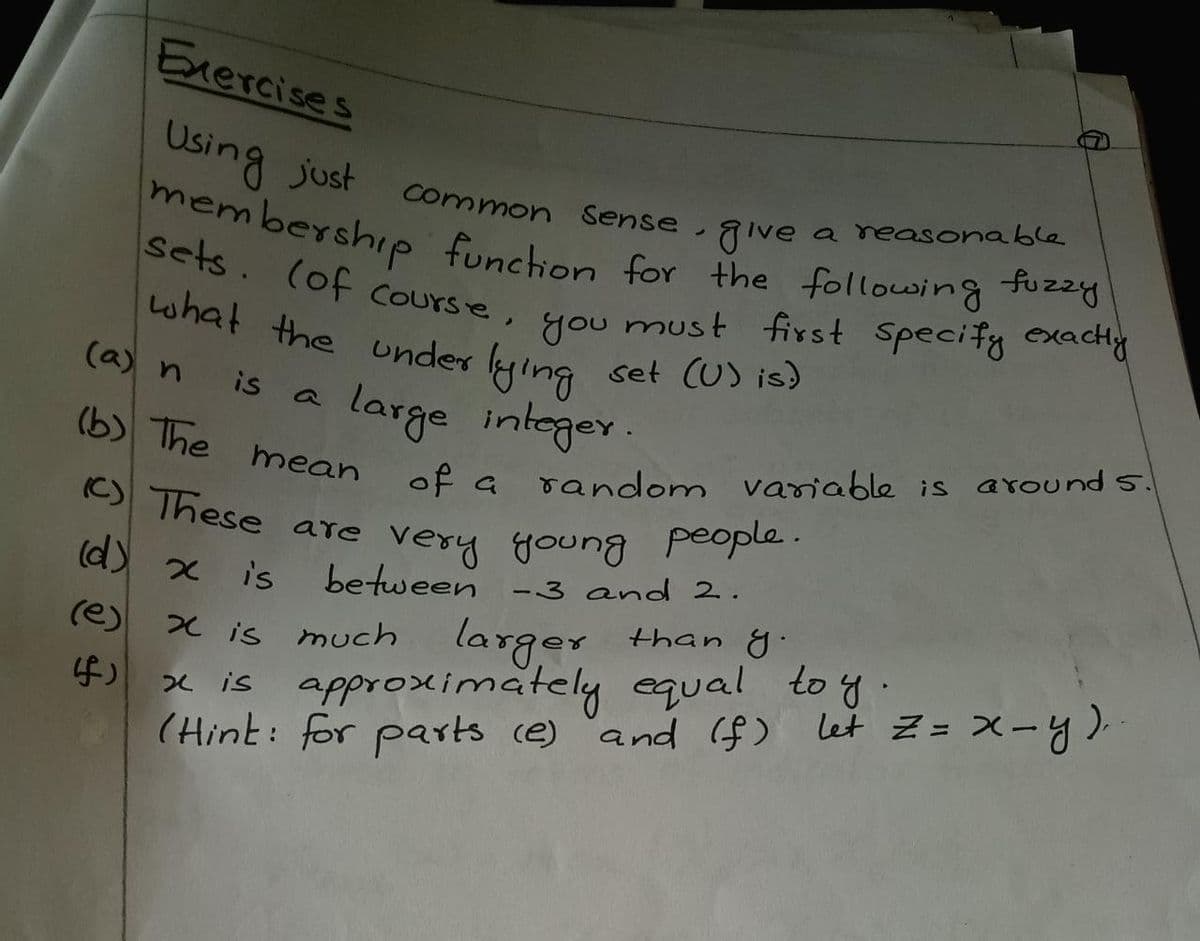 Exercises
7
Using just common sense, give a reasonable
membership function for the following fuzzy
sets. (of course, you must first specify exactly
what the underlying set (U) is)
(a) n is a large integer.
(b) The mean of a random variable is around 5.
(c) These are very young people.
(d) x is between -3 and 2.
(e) x is much larger than y.
(f) x is approximately equal to y.
(Hint: for parts (e) and (f) let z = x-y).